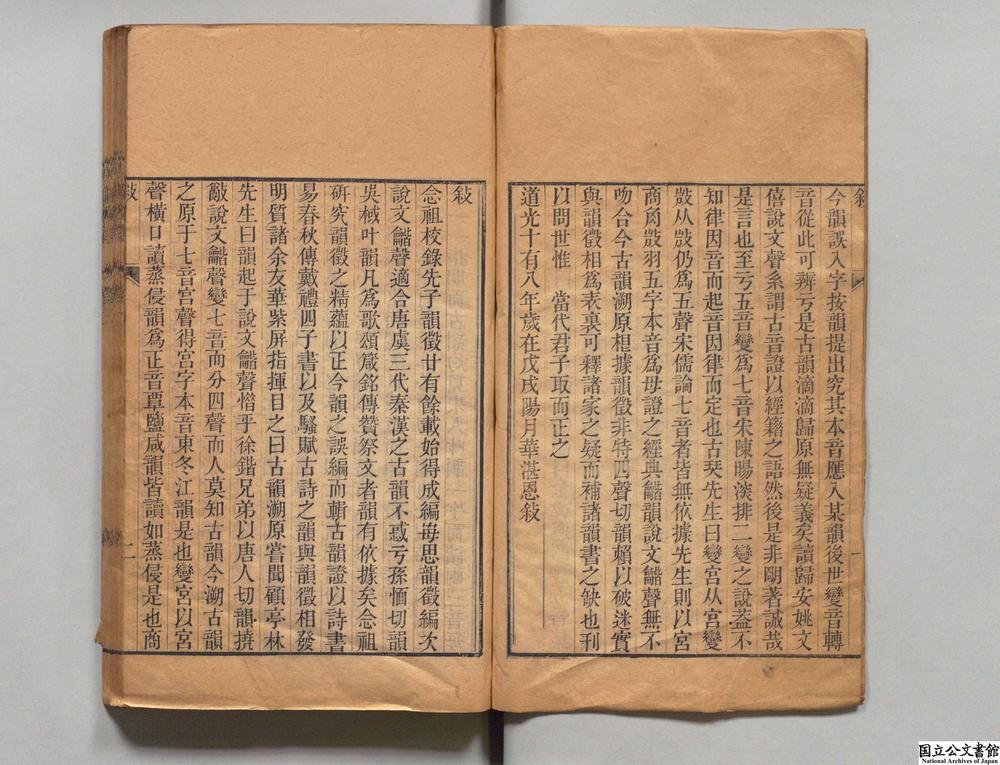 敍
今韻誤入字按韻提出究其本音應入某韻後世變音轉
音從此可辨亏是古韻滴滴歸原無疑義矣讀歸安姚文
僖說文聲系謂古音證以經籍之語然後是非朙著誠哉
是言也至亏五音變爲七音宋陳暘淡排二變之說葢不
知律因音而起音因律而定也古琹先生曰變宫从宫變
㱾从㱾仍爲五聲宋儒論七音者皆無依據先生則以宮
商㱾羽五字本音爲母證之經典龤韻說文龤聲無不
吻合今古韻溯原椙據韻徵非特四聲切韻賴以破迷實
與韻徵相爲表裏可釋諸家之疑而補諸韻書之缺也刊
以問世惟 當代君子取而正之
道光十有八年歲在戊戌陽月華湛恩敍
一
敍
念祖校錄先子韻徵廿有餘載始得成編每思韻徵編次
說文龤聲適合唐虞三代秦漢之古韻不惑亏孫愐切韻
吳棫叶韻凡爲歌頌箴銘傳贊祭文者韻有依據矣念祖
硏究韻徵之精蘊以正今韻之誤編而輯古韻證以詩書
易春秋傳戴禮四子書以及騷賦古詩之韻與韻徵相發
明質諸余友華紫屏指揮目之曰古韻溯原嘗聞顧亭林
先生曰韻起于說文龤聲惜乎徐鍇兄弟以唐人切韻撓
敵說文龤聲變七音而分四聲而人莫知古韻今溯古韻
之原于七音宮聲得宮字本音東冬江韻是也變宮以宮
聲橫口讀蒸侵韻爲正音覃鹽咸韻皆讀如蒸侵是也商
敍
二
国立公文書館
National Archives of Japan